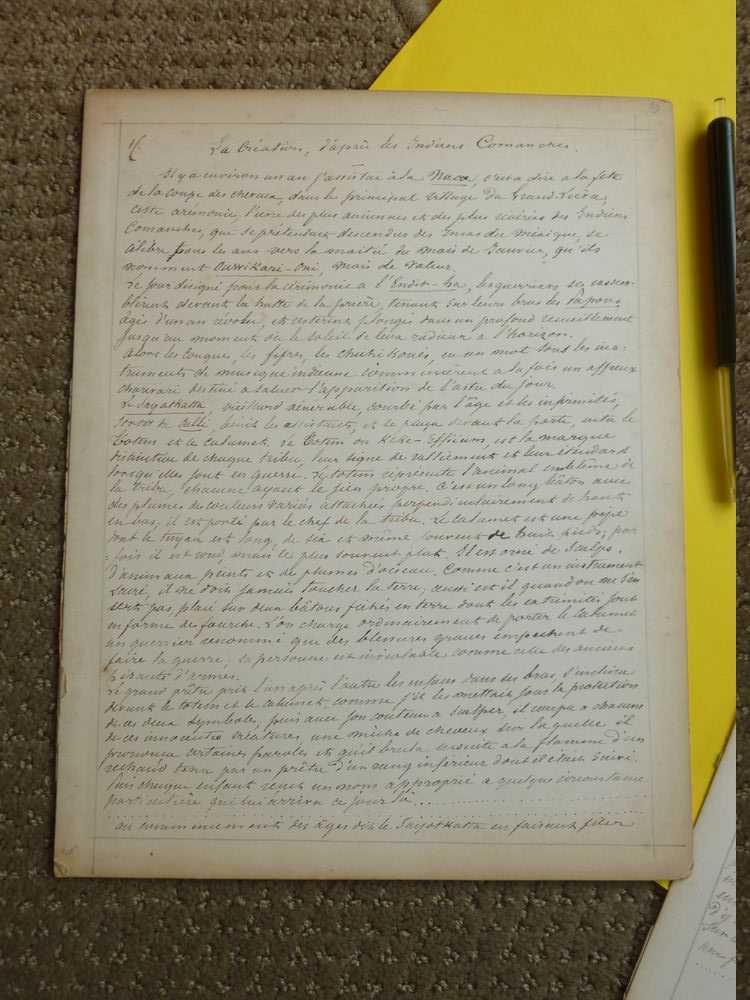 70
1/. La Création, d'après les Indiens Comanches.
Il y a environ un an j'assistai à la Naca, c'est a dire à la fête
de la coupe des cheveux, dans le principal village du Grand-Lièvre,
cette cérémonie, l'une des plus anciennes et des plus vénérées des Indiens
Comanches, que se prétendent descendus des Incas du Méxique, se
célèbre tous les ans vers la moitié du mois de Janvier, qu'ils
nomment Ouvrikari-Oni, mois de valeur.
Le jour désigné pour la cérémonie à l'Endit-ha, les guerriers se rassem-
blèrent devant la hutte de la prière, tenant sur leurs bras les
âgés d'un an révolu, et restèrent plongés dans un profond recueillement
jusqu'au moment où le soleil se leva radieux à l'horizon.
Alors les conques, les fifres, les chichikoués, en un mot tous les ins-
truments de musique indienne commencèrent à la fois un affreux
charivari destiné a saluer l'apparition de l'astre du jour.
Le Sayotkatta, vieillard vénérable, courbé par l'âge et les infirmités,
sortit du Calli, bénit les assistants, et se plaça devant la porte, entre le
Totem et le calumet. Le Totem ou Kékè-Effium, est la marque
distinctive de chaque tribu, leur signe de ralliement et leur étendard
lorsqu'elles sont en guerre. Le totem représente l'animal emblême de
la tribu, chacune ayant le sien propre. C'est un long bâton avec
des plumes de couleurs variées attachées perpendiculairement de haut
en bas, il est porté par le chef de la tribu. Le calumet est une pipe
dont le tuyau est long, de six et même souvent de huit pieds, par
-fois il est rond, mais le plus souvent plat. Il est orné de scalps,
d'animaux peints et de plumes d'oiseau. Comme c'est un instrument
sacré, il ne doit jamais toucher la terre; aussi est il quand on ne s'en
sert pas, placé sur deux bâtons fichés en terre dont les extrémités sont
en forme de fourche. L'on charge ordinairement de porter le calumet
un guerrier renommé que des blessures graves empêchent de
faire la guerre; sa personne est inviolable comme celle des anciens
hérauts d'armes.
Le grand prêtre prit l'un après l'autre les enfans dans ses bras, s'inclina
devant le totem et le calumet, comme s'il les mettait sous la protection
de ces deux symboles, puis avec son couteau a scalper il coupa a chacune
de ces innocentes créatures, une mèche de cheveux sur la quelle il
prononça certaines paroles et qu'il brula ensuite a la flamme d'un
réchaud tenu par un prêtre d'un rang inférieur dont il était suivi.
Puis chaque enfant reçut un nom approprié a quelque circonstance
particulière qui lui arriva ce jour là...
au commencement des âges dit le Sayotkatta en faisant filer